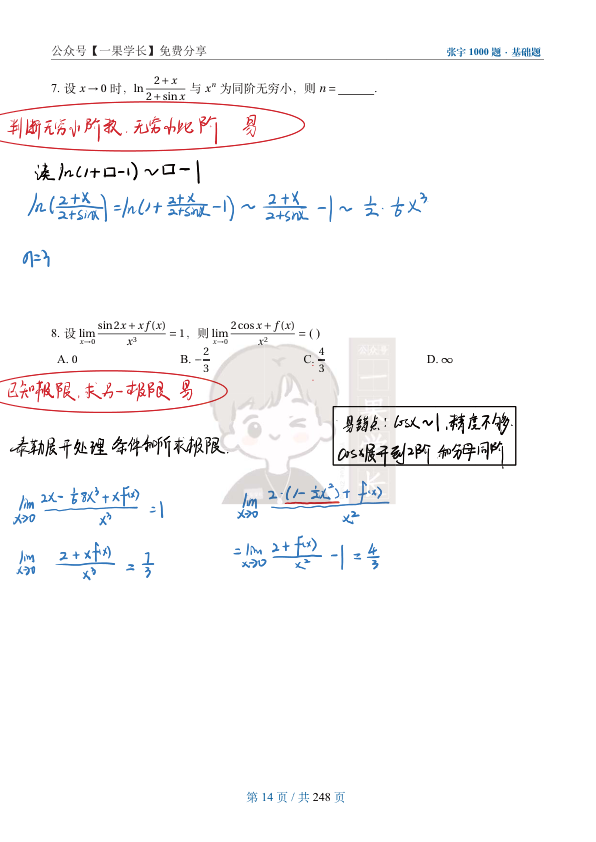 公众号【一果学长】免费分享
张宇 1000 题 · 基础题
7. 设 x→0 时，ln (2+x)/(2+sin x) 与 xⁿ 为同阶无穷小，则 n = ______.
判断无穷小阶数、无穷小比阶 易
凑 ln(1+口-1) ~ 口-1
ln((2+x)/(2+sinx)) = ln(1+(2+x)/(2+sinx)-1) ~ (2+x)/(2+sinx) -1 ~ 1/2 · 1/6 x³
n=3
8. 设 lim_{x→0} (sin 2x + x f(x))/x³ = 1，则 lim_{x→0} (2cos x + f(x))/x² = ( )
A. 0 B. -2/3 C. 4/3 D. ∞
已知极限，求另一极限 易
易错点：cosx~1，精度不够.
cosx展开到2阶 和分母同阶
泰勒展开处理 条件和所求极限.
lim_{x→0} (2x - 1/6 8x³ + xf(x))/x³ = 1
lim_{x→0} (2·(1-1/2x²) + f(x))/x²
lim_{x→0} (2 + xf(x))/x³ = 7/3
= lim_{x→0} (2+f(x))/x² - 1 = 4/3
公众号
一果学长
第 14 页 / 共 248 页